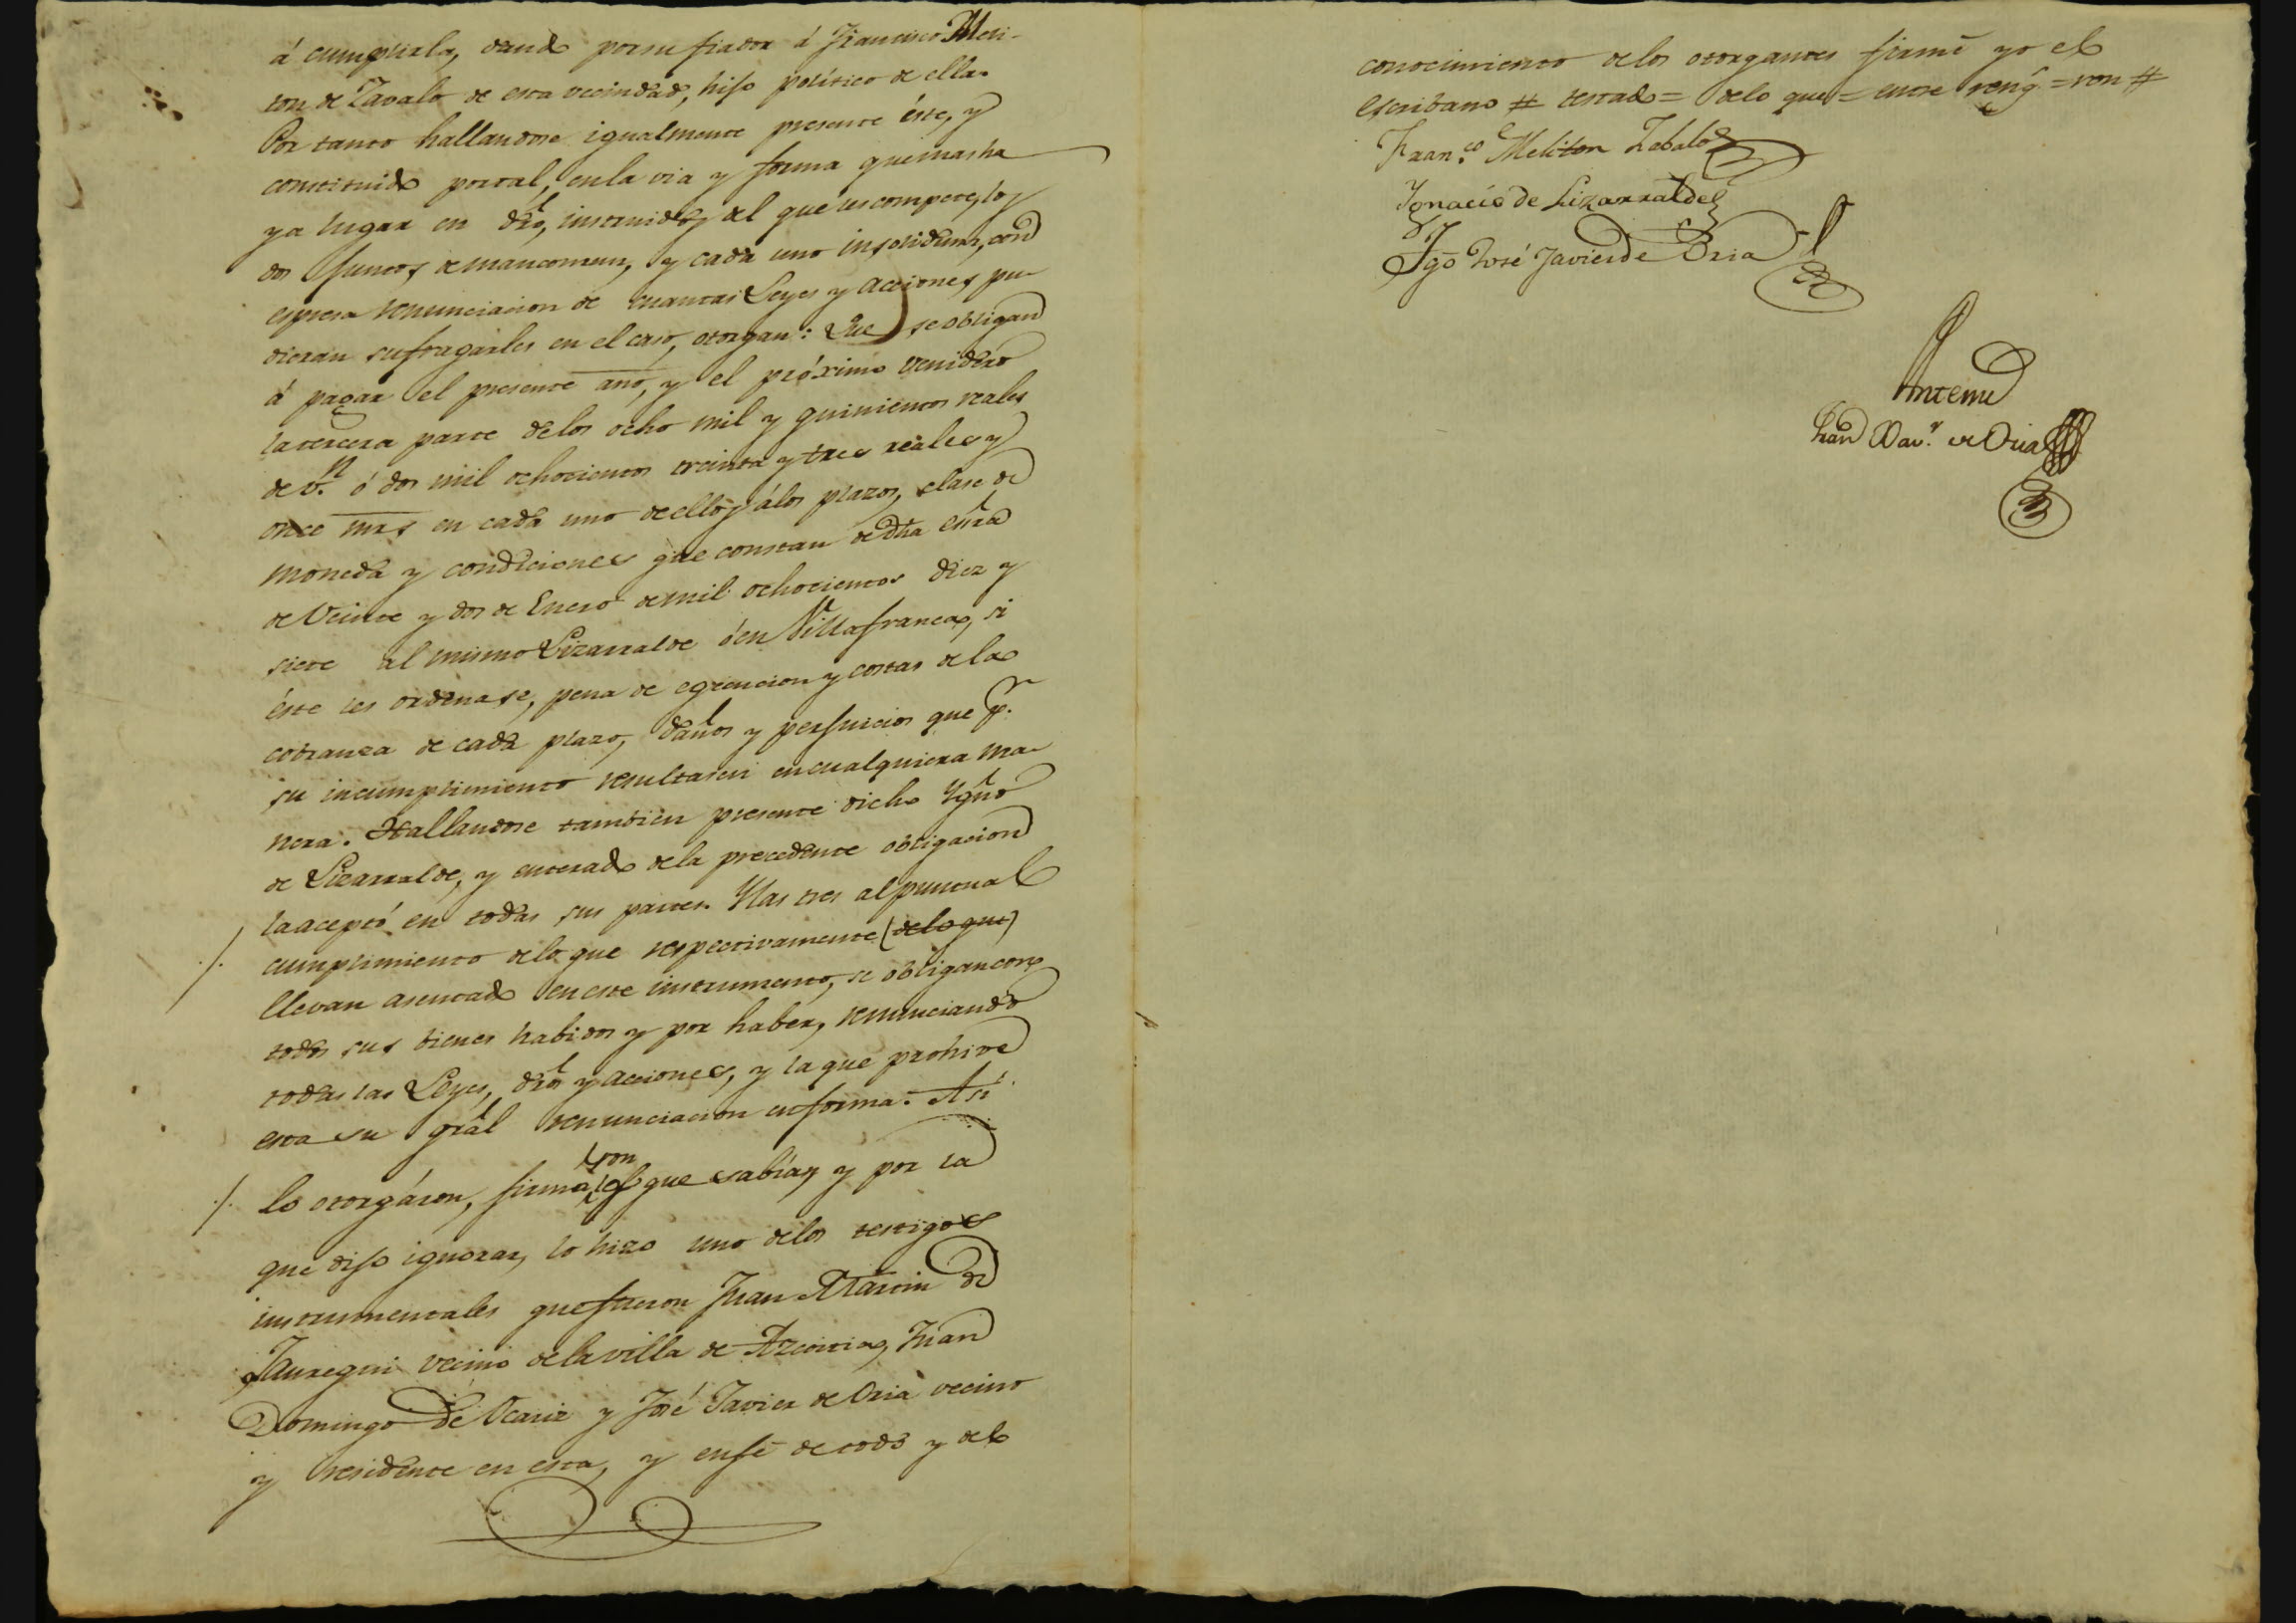 á cumplirla, dando por su fiador á Francisco Meli-
ton de Zavalo de esta vecindad, hijo político de ella.
Por tanto hallandose igualmente presente éste, y
constituido por tal, en la via y forma que mas ha
ya lugar en dro, instruidos del que les compete, los
dos juntos de mancomun, y cada uno insolidum, con
espresa renunciacion de cuantas Leyes y acciones pu-
dieran sufragarles en el caso, otorgan: Que se obligan
á pagar el presente año, y el próximo venidero
la tercera parte de los ocho mil y quinientos reales
de v.n ó dos mil ochocientos treinta y tres reales y
once mrs en cada uno de ellos á los plazos, clase de
moneda y condiciones que constan de dha esra
de Veinte y dos de Enero de mil ochocientos diez y
siete al mismo Lizarralde ó en Villafranca, si
éste les ordenase, pena de egecucion y costas de la
cobranza de cada plazo, daños y perjuicios que p.r
su incumplimiento resultasen en cualquiera ma-
nera. Hallandose tambien presente dicho Ygno
de Lizarralde, y enterado de la precedente obligacion
la aceptó en todas sus partes. Y las tres al puntual
./. cumplimiento de lo que respectivamente (de lo que)
llevan asentado en este instrumento, se obligan con
todos sus bienes habidos y por haber, renunciando
todas las Leyes, dros y acciones, y la que prohive
esta su gral renunciacion en forma. Asi
ron
./. lo otorgáron, firma los que sabían, y por la
que dijo ignorar, lo hizo uno de los testigos
instrumentales que fueron Juan Martin de
Jauregui vecino de la villa de Azcoitia, Juan
Domingo de Ocariz y José Javier de Oria vecino
y residente en esta, y en fé de todo y del
conocimiento de los otorgantes firmé yo el
escribano # testado = de lo que = entre reng.s = ron #
Fran.co Meliton Zabalo
Ygnacio de Lizarralde
Tgo José Javier de Oria
Ante mi
Juan Xav.r de Oria